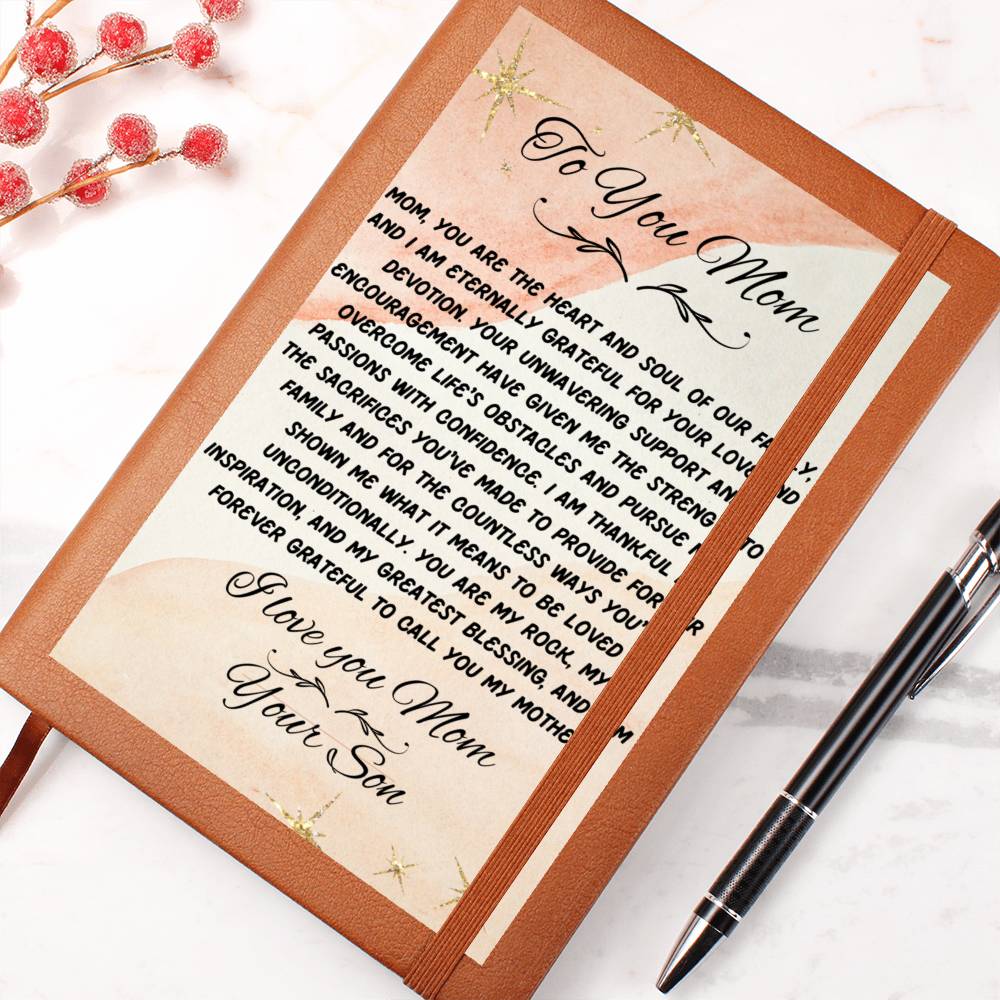 To You Mom
MOM, YOU ARE THE HEART AND SOUL OF OUR FAMILY,
AND I AM ETERNALLY GRATEFUL FOR YOUR LOVE AND
DEVOTION. YOUR UNWAVERING SUPPORT AND
ENCOURAGEMENT HAVE GIVEN ME THE STRENGTH TO
OVERCOME LIFE'S OBSTACLES AND PURSUE MY
PASSIONS WITH CONFIDENCE. I AM THANKFUL FOR
THE SACRIFICES YOU'VE MADE TO PROVIDE FOR OUR
FAMILY AND FOR THE COUNTLESS WAYS YOU'VE
SHOWN ME WHAT IT MEANS TO BE LOVED
UNCONDITIONALLY. YOU ARE MY ROCK, MY
INSPIRATION, AND MY GREATEST BLESSING, AND I AM
FOREVER GRATEFUL TO CALL YOU MY MOTHER
I love you Mom
Your Son